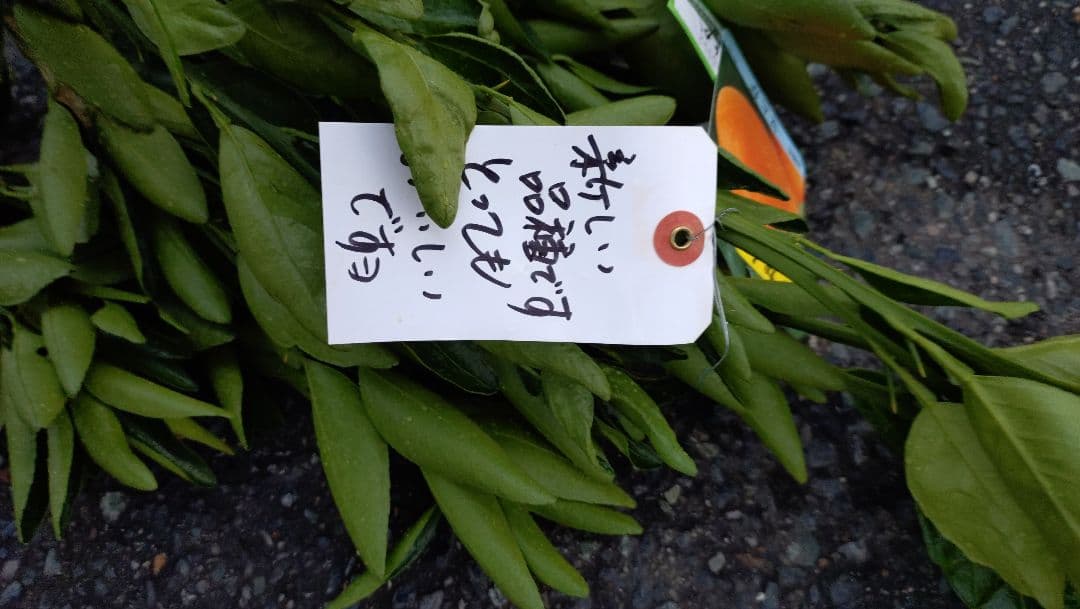 新しい
品種です
とっても
しい
ですヨ